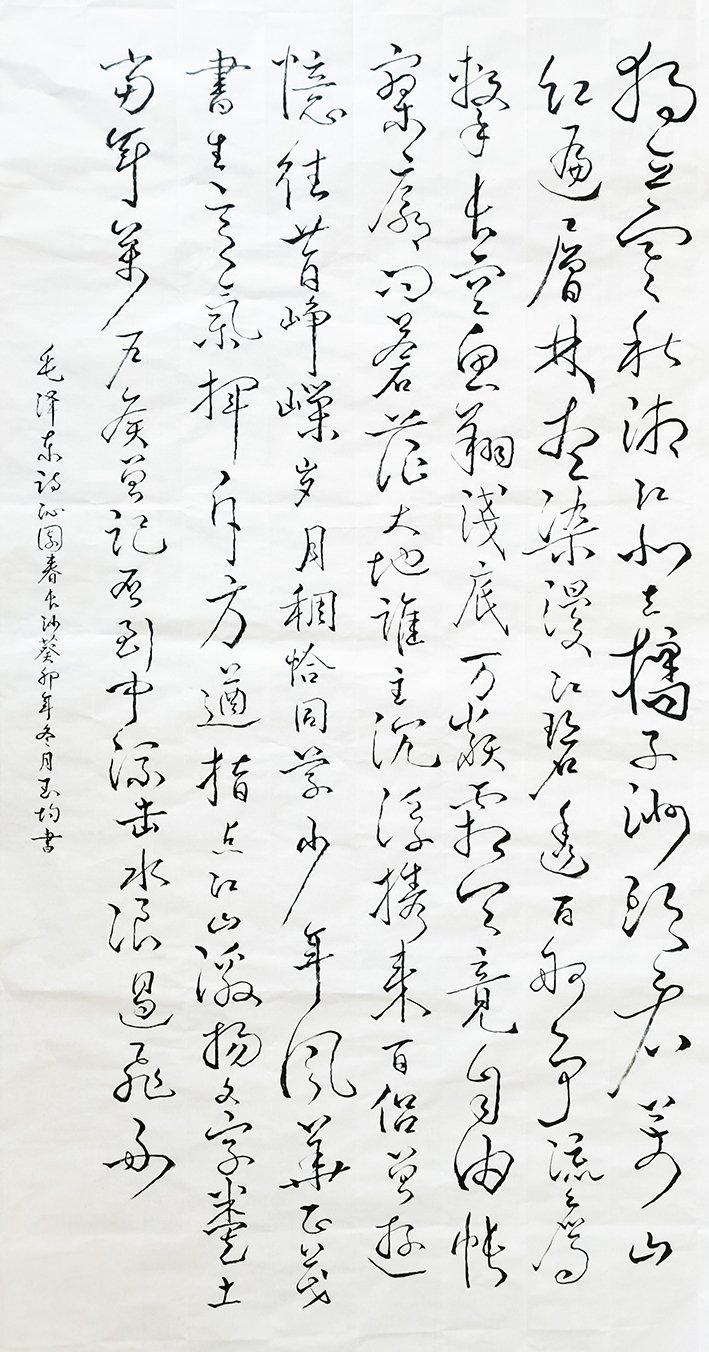 独立寒秋湘江北去橘子洲头看萬山
红遍層林尽染漫江碧透百舸争流鹰
擊长空鱼翔淺底万類霜天竟自由怅
寥廓问蒼茫大地誰主沉浮携来百侣曾遊
憶往昔峥嵘岁月稠恰同学少年风華正茂
書生意氣揮斥方遒指点江山激扬文字粪土
当年萬户侯曾记否到中流击水浪遏飞舟
毛泽东诗沁園春长沙葵卯年冬月玉均書